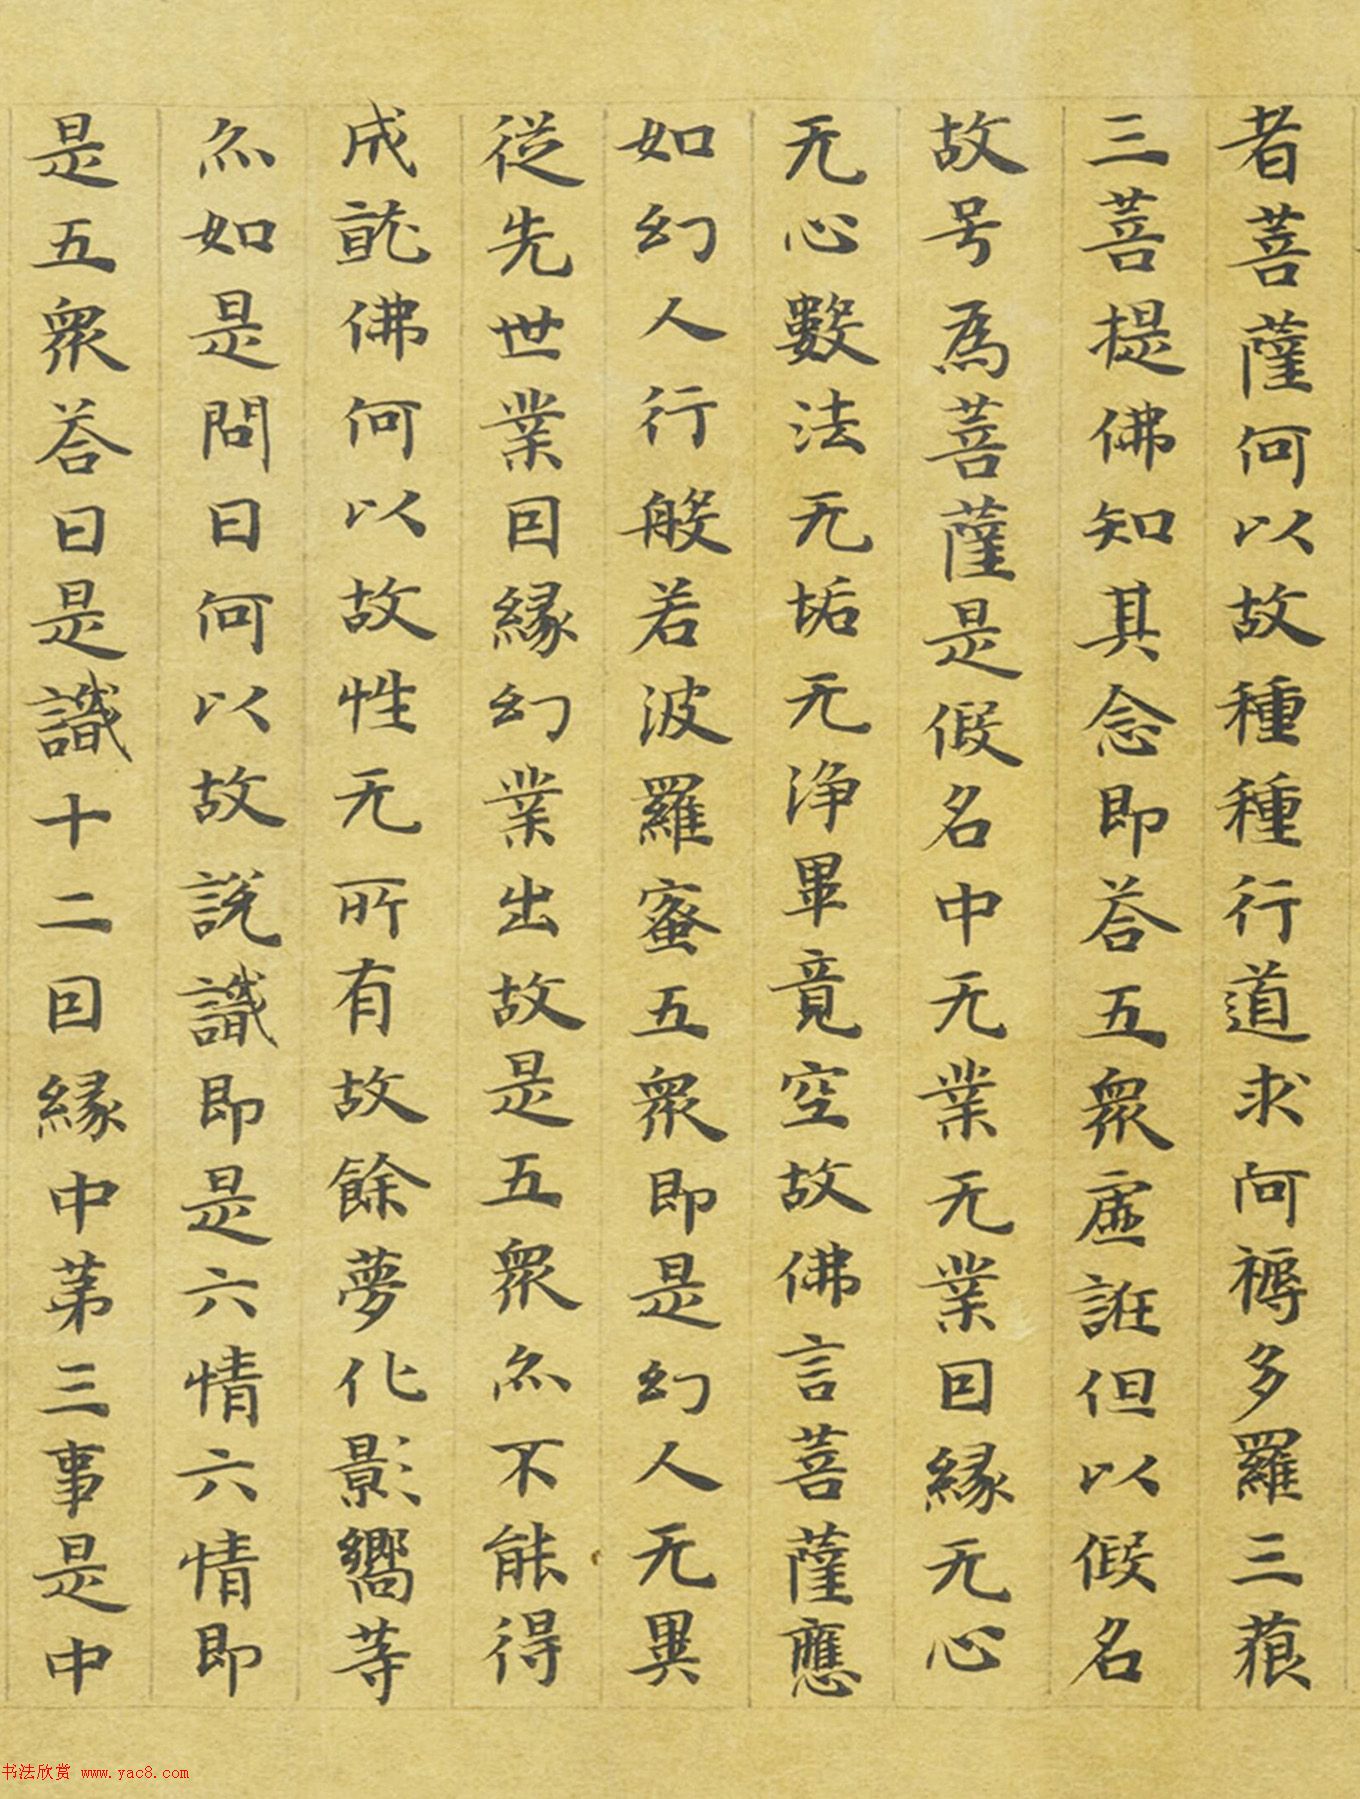 者菩薩何以故種種行道求阿耨多羅三藐
三菩提佛知其念即荅五衆虛誑但以假名
故号為菩薩是假名中无業无業因緣无心
无心數法无垢无淨畢竟空故佛言菩薩應
如幻人行般若波羅蜜五衆即是幻人无異
從先世業因緣幻業出故是五衆亦不能得
成就佛何以故性无所有故餘夢化影嚮等
亦如是問曰何以故說識即是六情六情即
是五衆荅曰是識十二因緣中第三事是中
书法欣赏 www.yac8.com